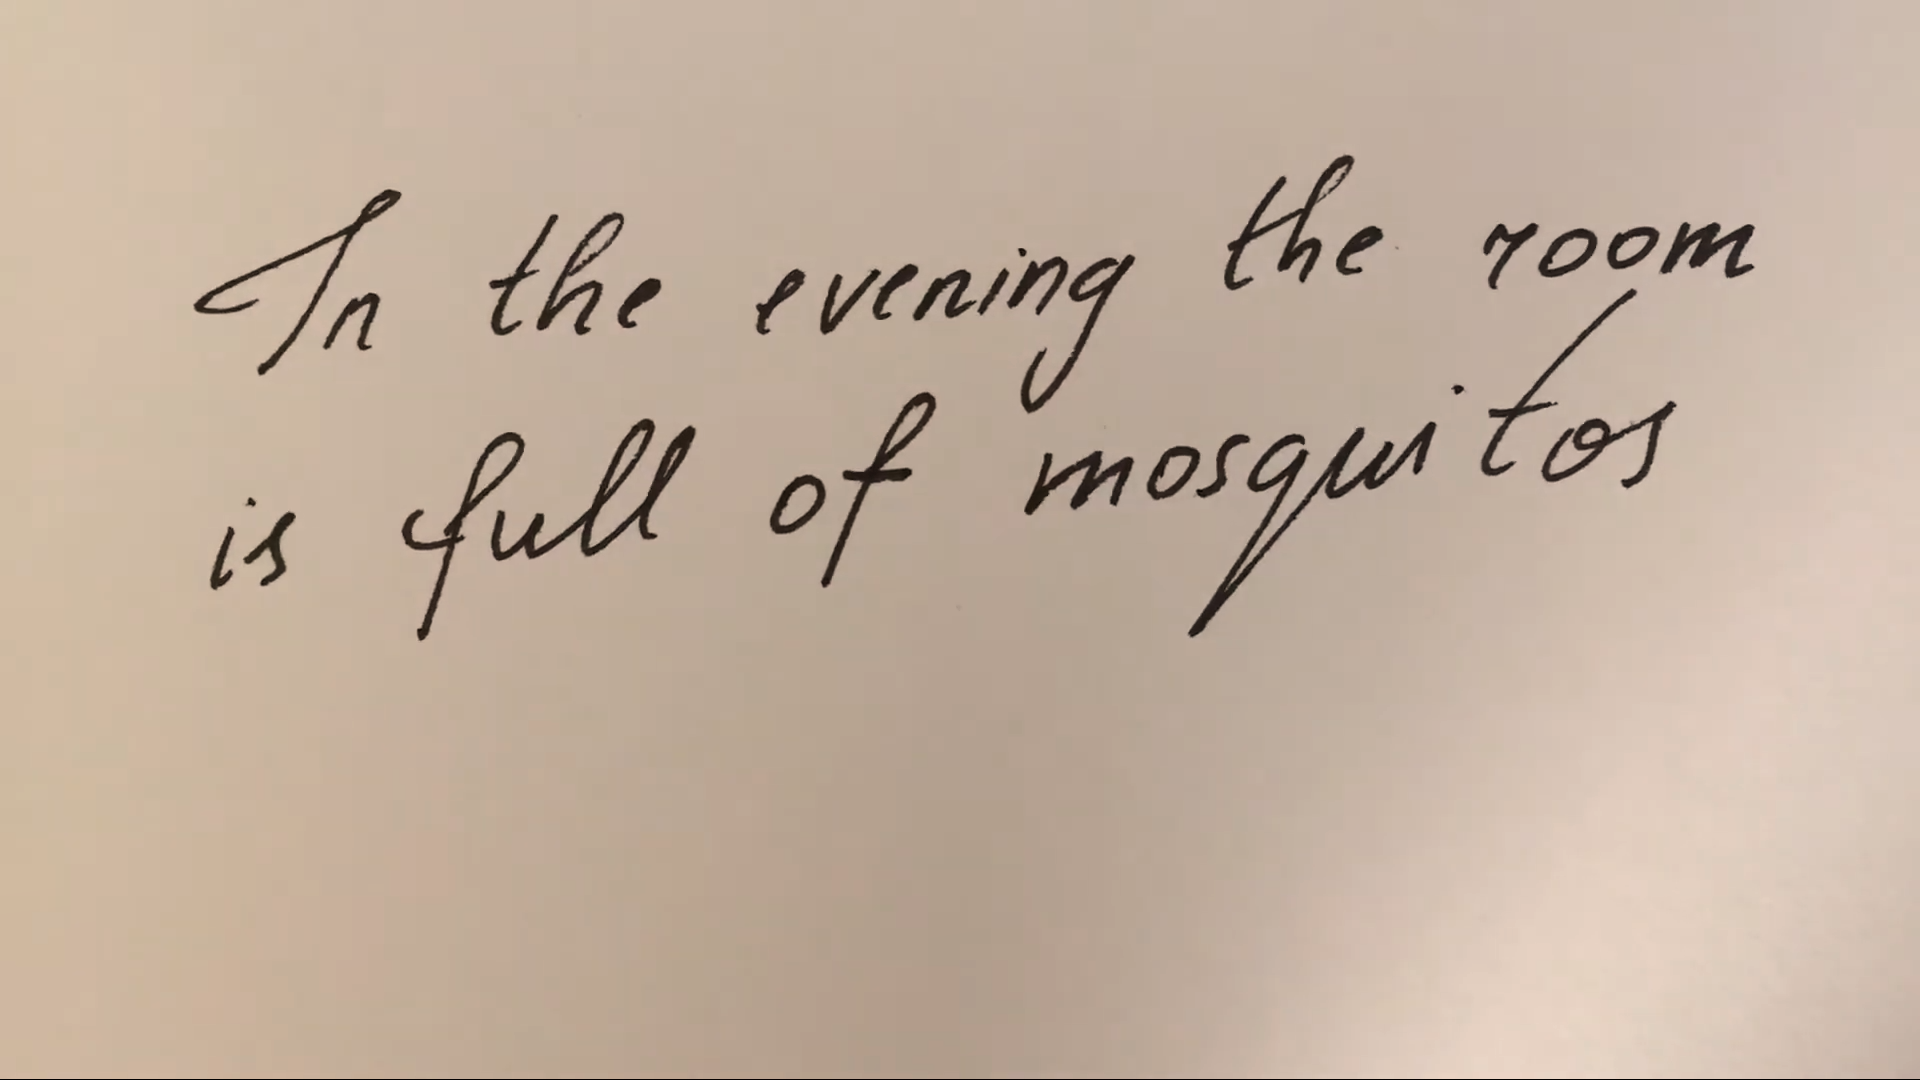 In the evening the room
is full of mosquitos